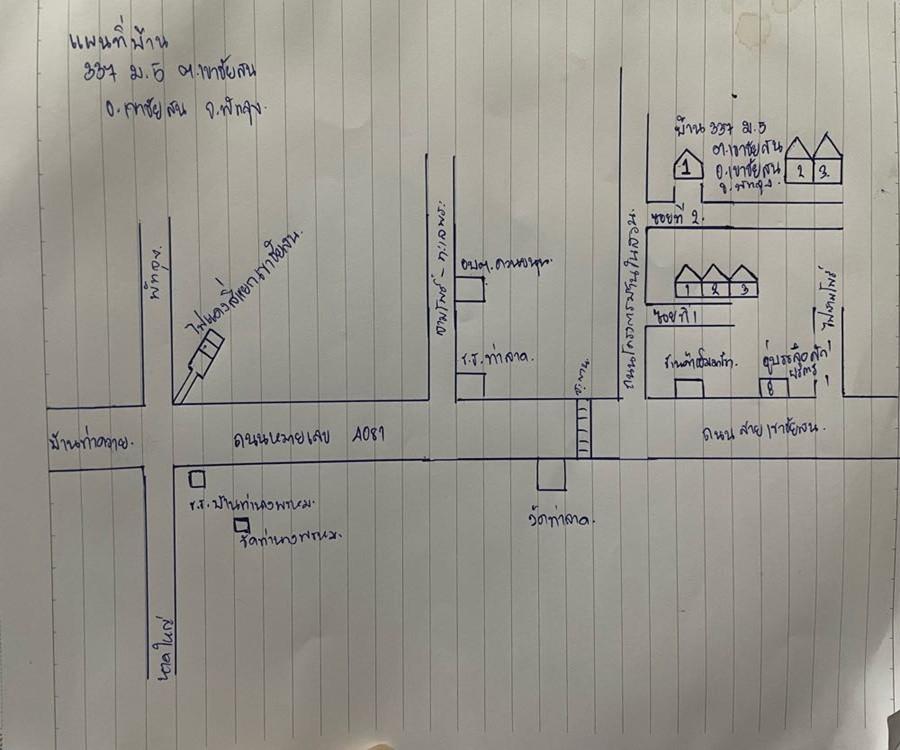 แผนที่บ้าน
337 ม.5 ต.เขาชัยสน
อ.เขาชัยสน จ.พัทลุง.
บ้าน 337 ม.5
ต.เขาชัยสน
อ.เขาชัยสน
จ.พัทลุง.
1
2 3
ซอยที่ 2.
พัทลุง.
ไฟแดงสี่แยกเขาชัยสน.
อบต.ควนขนุน
ร.ร.ท่าลาด.
1 2 3
ซอยที่ 1
ถนนโครงการบ้านในสวน
บ้านท่าควาย.
ถนนหมายเลข 4081
ถนนสายเขาชัยสน.
ร.ร.บ้านท่านางพรหม.
วัดท่านางพรหม.
วัดท่าลาด.
หาดใหญ่